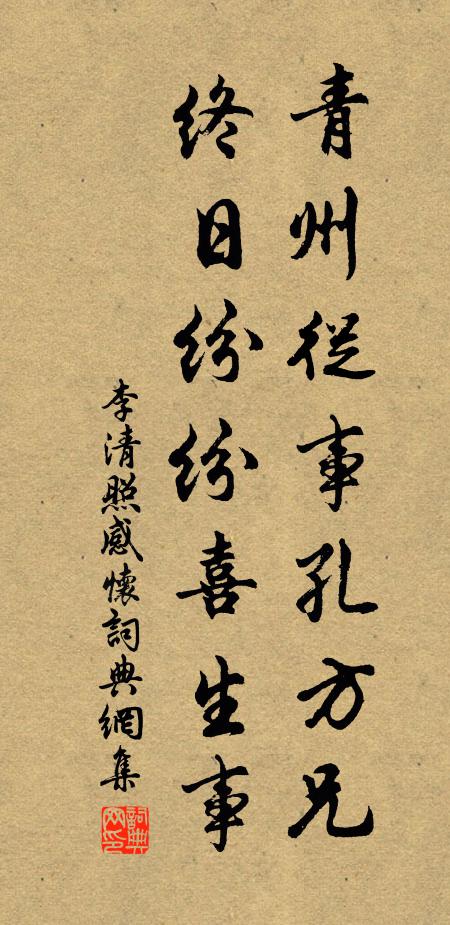 青州從事孔方兄
終日紛紛喜生事
李清照感懷詞典網集
詞典网印